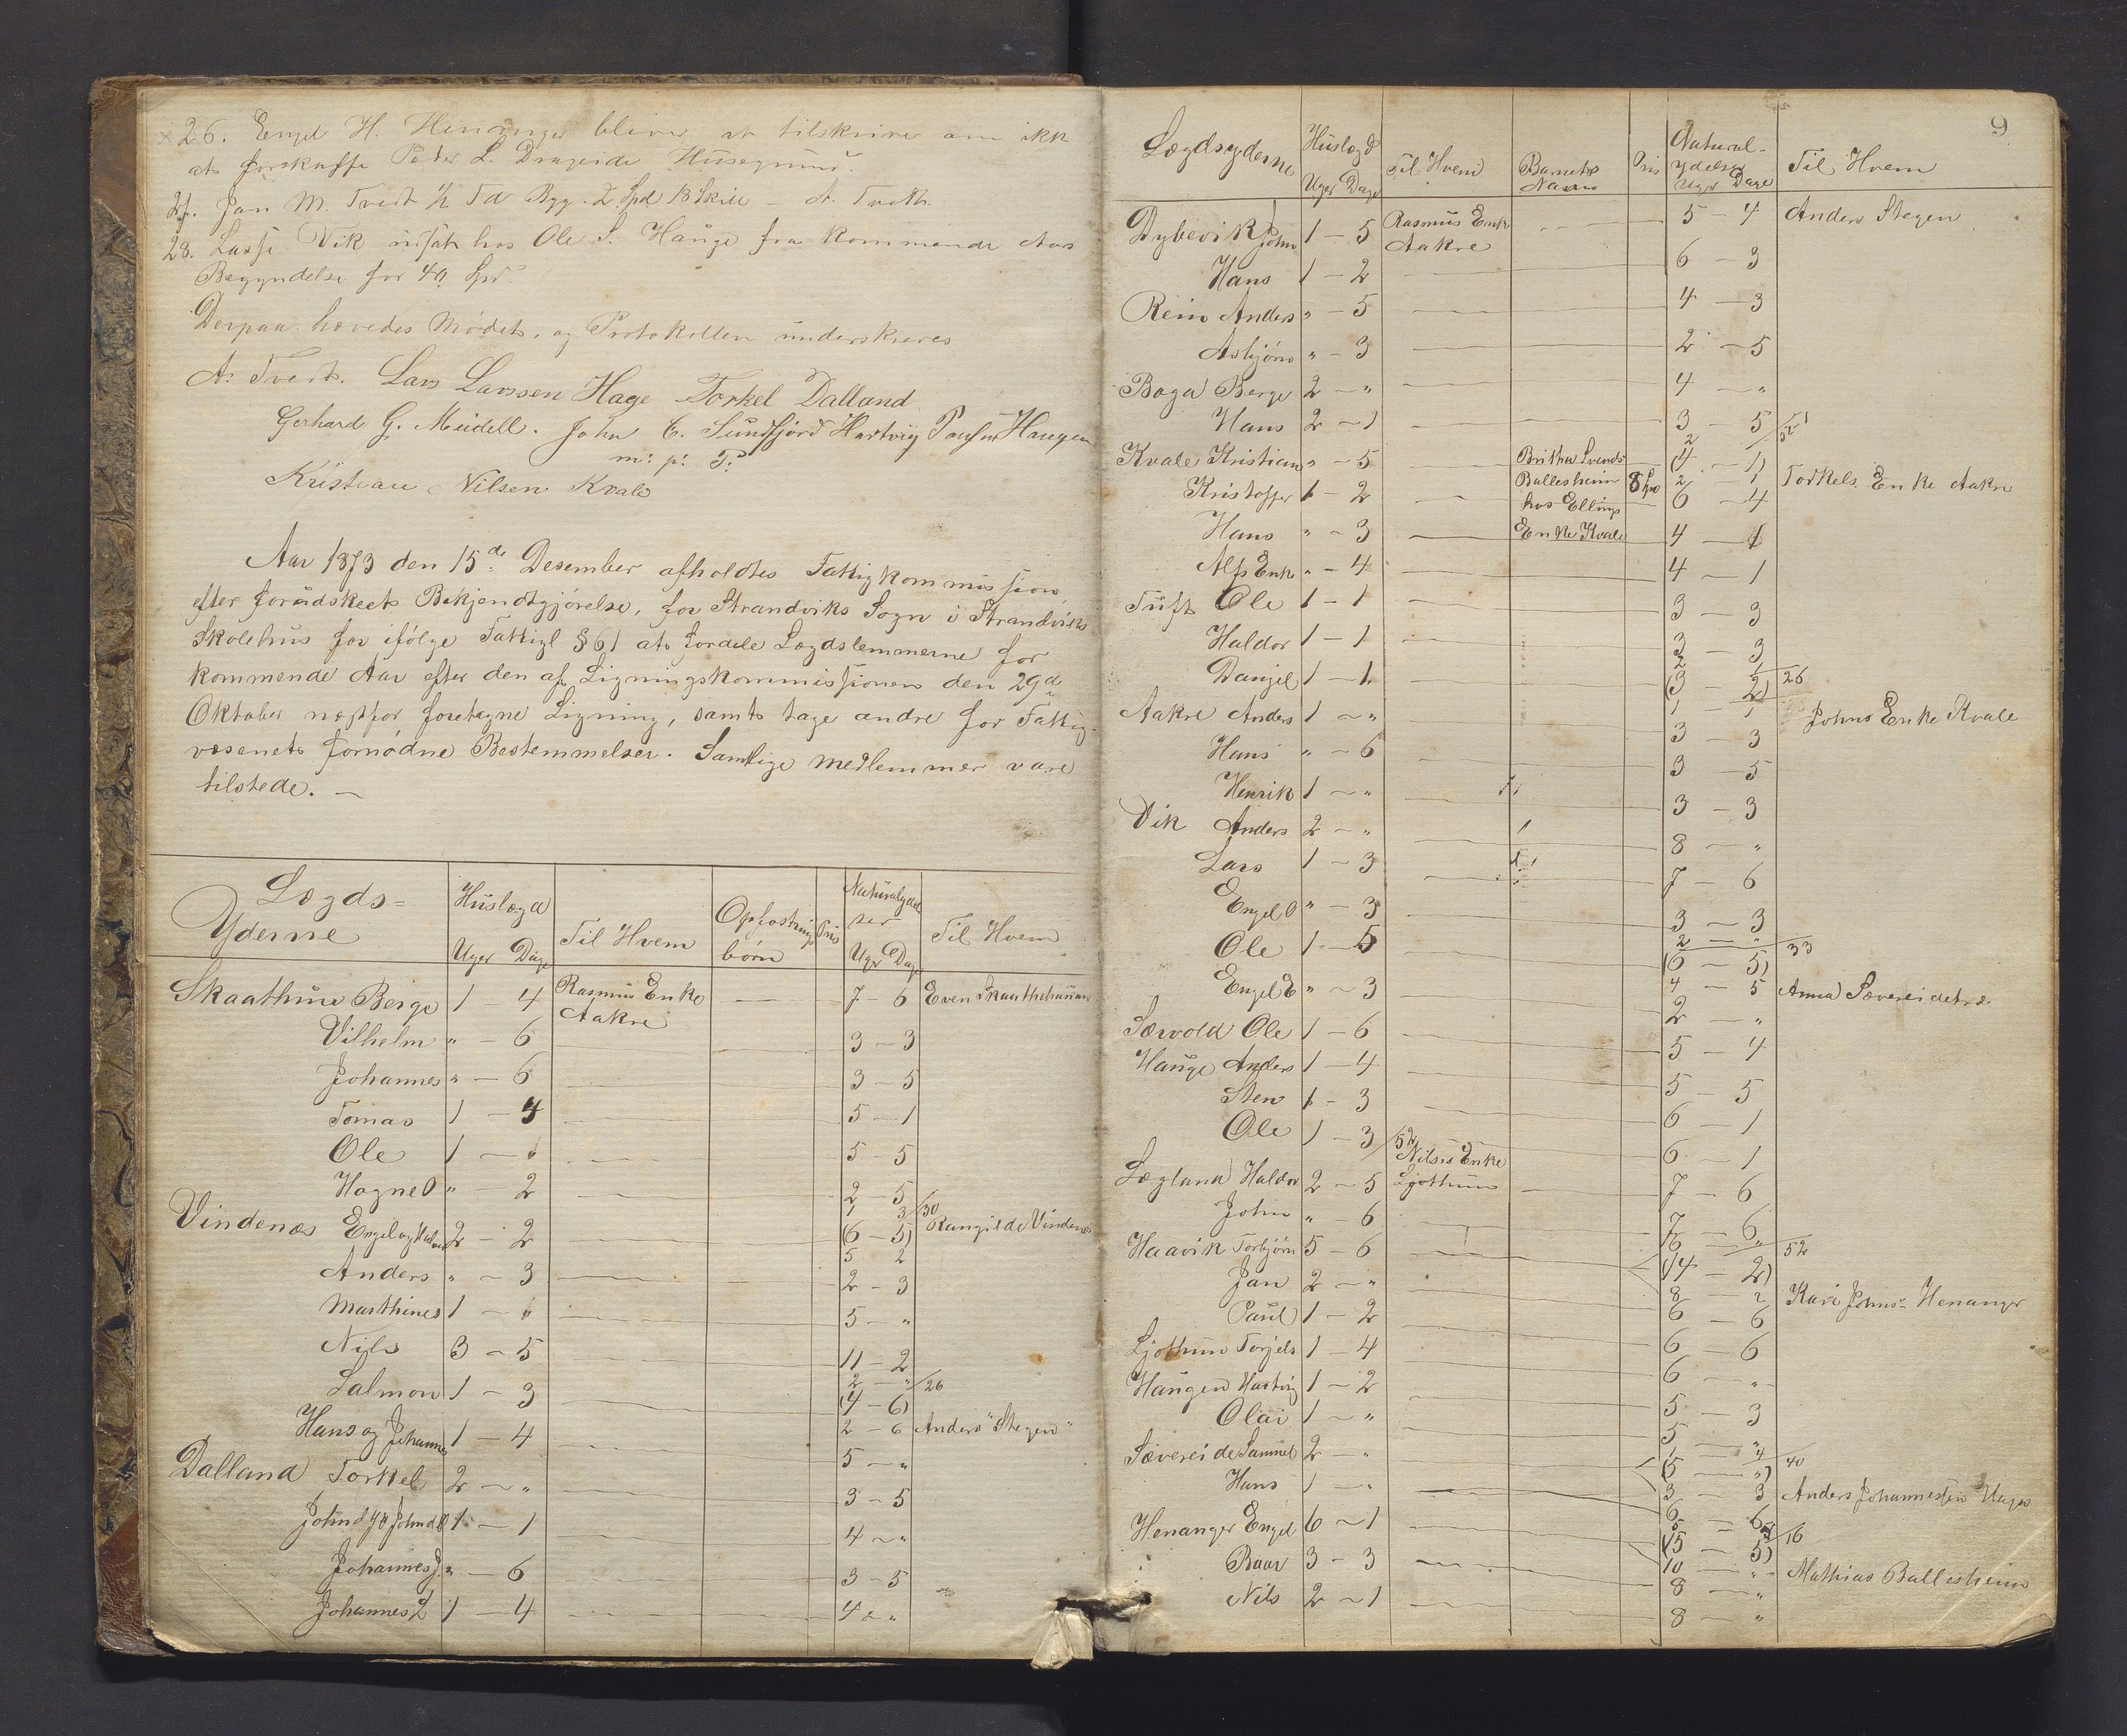 26. Engel H. Henanger bliver at tilskrive om ikke
at forskaffe Peder L. Drageide Husegrund.
27. Jan M. Tveit ½ Td Byg 2 Spd 18 Skill - A. Tveit.
28. Lasse Vik udsat hos Ole S. Hauge fra kommende Aars
Begyndelse for 40 Spd.
Derpaa hævedes Mødet, og Protokollen underskreves
A. Tveit. Lars Larssen Hage Torkel Dalland
Gerhard G. Meidell. John C. Sundfjord Hartvig Haugen
m: p: P:
Kristian Nilsen Kvale
Aar 1873 den 15de Desember afholdtes Fattigkommission,
efter forudskeet Bekjendtgjørelse, for Strandviks Sogn i Strandviks
Skolehus for ifølge Fattigl § 61 at fordele Lægdslemmerne for
kommende Aar efter den af Ligningskommissionen den 29d
Oktober næstfor foretagne Ligning, samt tage andre for Fattig-
væsenet fornødne Bestemmelser. Samtlige medlemmer vare
tilstede. —
Lægds- Yderne Huslægd Uger Dage Til Hvem Opfostrings børn Pris Naturalydelser Uger Dage Til Hvem
Skaathun Berge 1 - 4 Rasmus Enke Aakre — 7 - 6 Even Skaathehaugen
Vilhelm " - 6 3 - 3
Johannes " - 6 3 - 5
Tomas 1 - 4 5 - 1
Ole 1 - " 5 - 5
Hogne O " 2 2 - 5
1 3 /30
Vindenæs Engel og 2 - 2 (6 - 5) Rangilde Vindenes
5 2
Anders " - 3 2 - 3
Marthines 1 - " 5 - "
Nils 3 - 5 11 - 2
2 - " /26
Salmon 1 - 3 (4 - 6)
2 - 6 Anders "Stegen"
Hans og Johannes 1 - 4 5 - "
Dalland Torkel 2 - " 3 - 5
1 - 1 4 - "
Johannes J. " - 6 3 - 5
Johannes L 1 - 4 4 - "
9
Lægdsyderne Huslægd Uger Dage Til Hvem Barnets Navn Pris Natural-ydelser Uger Dage Til Hvem
Dybevik John 1 - 5 Rasmus Enke Aakre 5 - 4 Anders Stegen
Hans 1 - 2 6 - 3
Rein Anders " - 5 4 - 3
Asbjörn " - 3 2 - 5
Boga Berge 2 - " 4 - "
Hans 2 - 1 3 - 5
Kvale Kristian " - 5 Britha Svends (4 - 1)
Kristoffer 1 - 2 Ballesheim hos Ellings 8 Spd 6 - 4 Torkels Enke Aakre
Hans " - 3 Enke Kvale 4 - 1
Alfs Enke " - 4 4 - 1
Tuft Ole 1 - 1 3 - 3
Haldor 1 - 1 3 - 3
2 1 /26
Danjel 1 - 1 (3 - 2)
1 - 1 Johns Enke Kvale
Aakre Anders 1 - " 3 - 3
Hans " - 6 3 - 5
Henrik 1 - " 3 - 3
Vik Anders 2 - " 8 - "
Lars 1 - 3 7 - 6
Engel O " - 3 3 - 3
2 - " /33
Ole 1 - 5 (6 - 5)
4 - 5 Anna Sævereidet
Engel E " - 3 2 - "
Sævold Ole 1 - 6 5 - 4
Hauge Anders 1 - 4 5 - 5
Sten 1 - 3 6 - 1
Ole 1 - 3 /52 6 - 1
Lægland Haldor 2 - 5 Nilses Enke Ljothun 7 - 6
John " - 6 7 - 6
6 - " /52
Haavik Torbjörn 5 - 6 (14 - 2)
8 - 2 Kari Johns Henanger
Jan 2 - " 6 - 6
Paul 1 - 2 6 - 6
Ljothun Torjels 1 - 4 6 - "
Haugen Hartvig 1 - 2 5 - 3
Olai 1 - " 5 - "
1 - 4 /40
Sævereide Samuel 2 - " (5 - ")
3 3 Anders Johannessen Hage
Hans 1 - " 6 - 6
Henanger Engel 6 - 1 (15 - 5) /16
10 - " Mathias Ballesheim
Baar 3 - 3 8 - "
Nils 2 - 1 8 - "